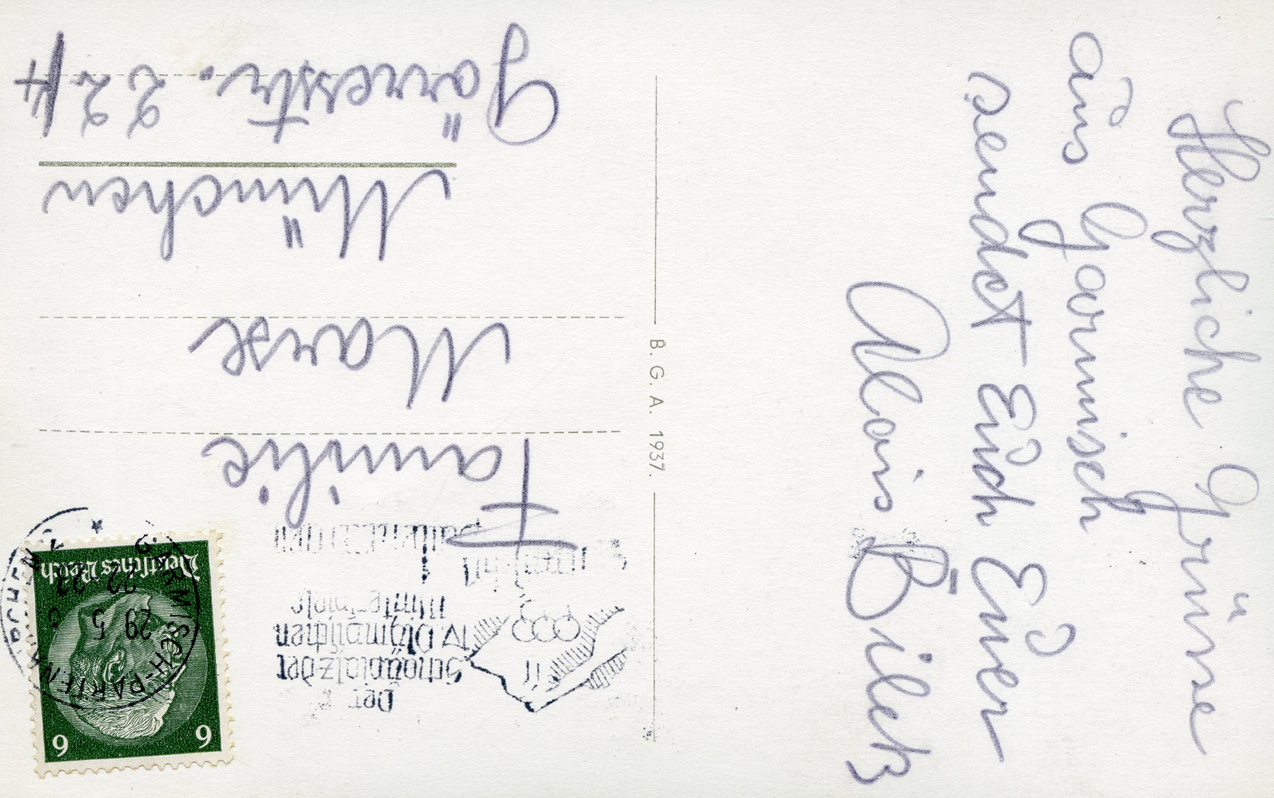 Herzliche Grüsse
aus Garmisch
sendet Euch Euer
Alois
B. G. A. 1937.
Der
Schauplatz der
IV. Olympischen
Winterspiele
Deutsches Reich
6 6
GARMISCH-PARTENKIRCHEN
29 5
22
Familie
München
Görresstr. 22/4